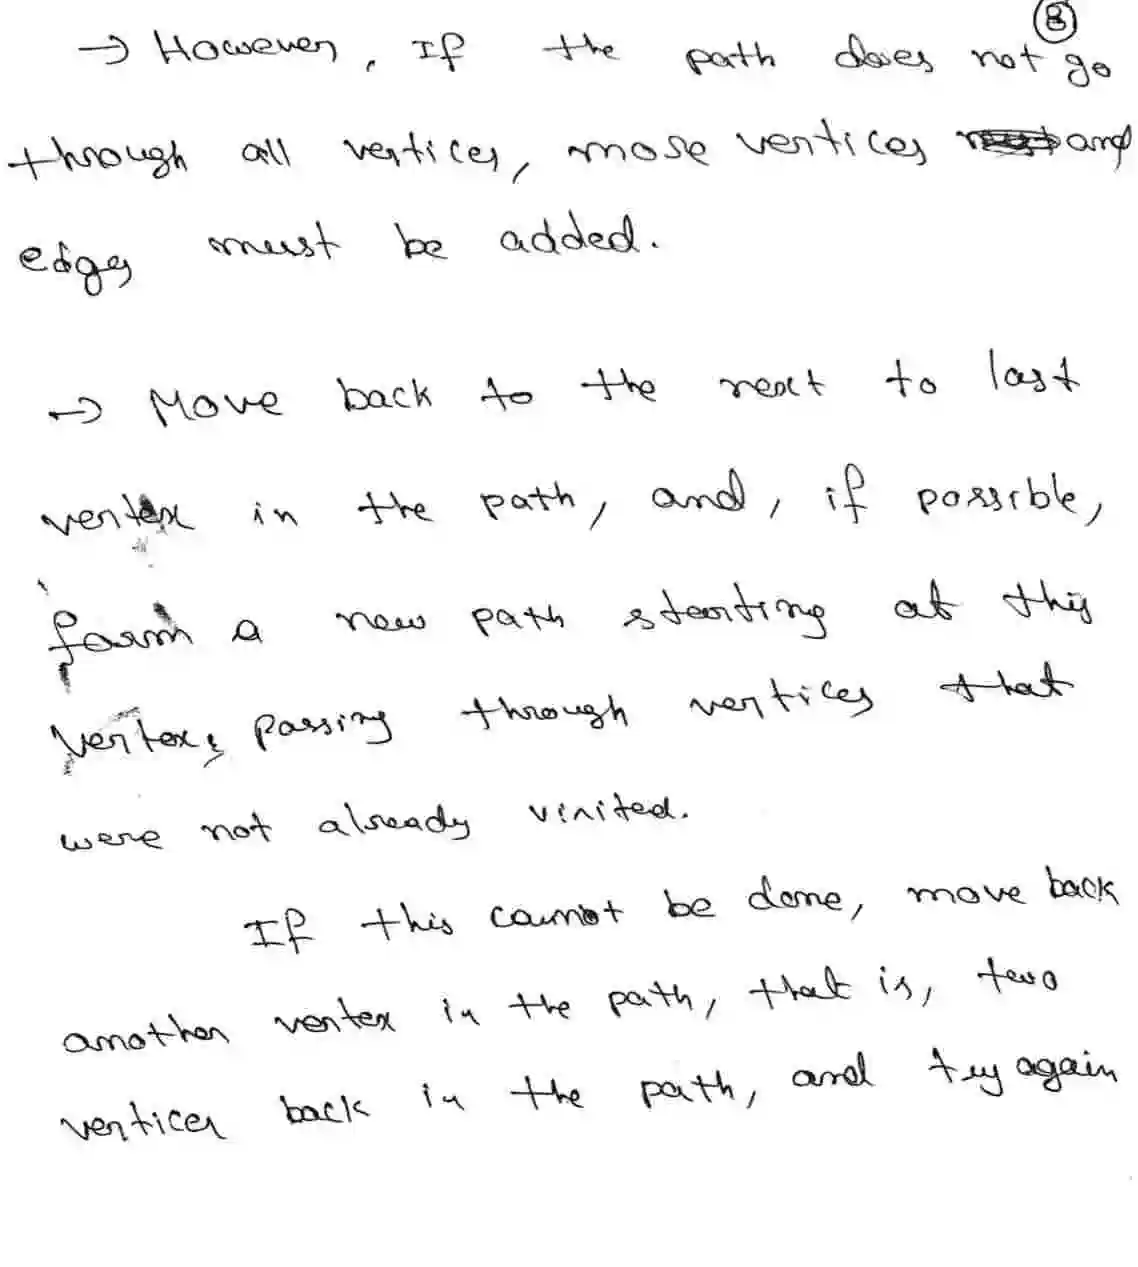 8
→ However, If the path does not go
through all vertices, more vertices and
edges must be added.
→ Move back to the next to last
vertex in the path, and, if possible,
form a new path starting at this
vertex, passing through vertices that
were not already visited.
If this cannot be done, move back
another vertex in the path, that is, two
vertices back in the path, and try again